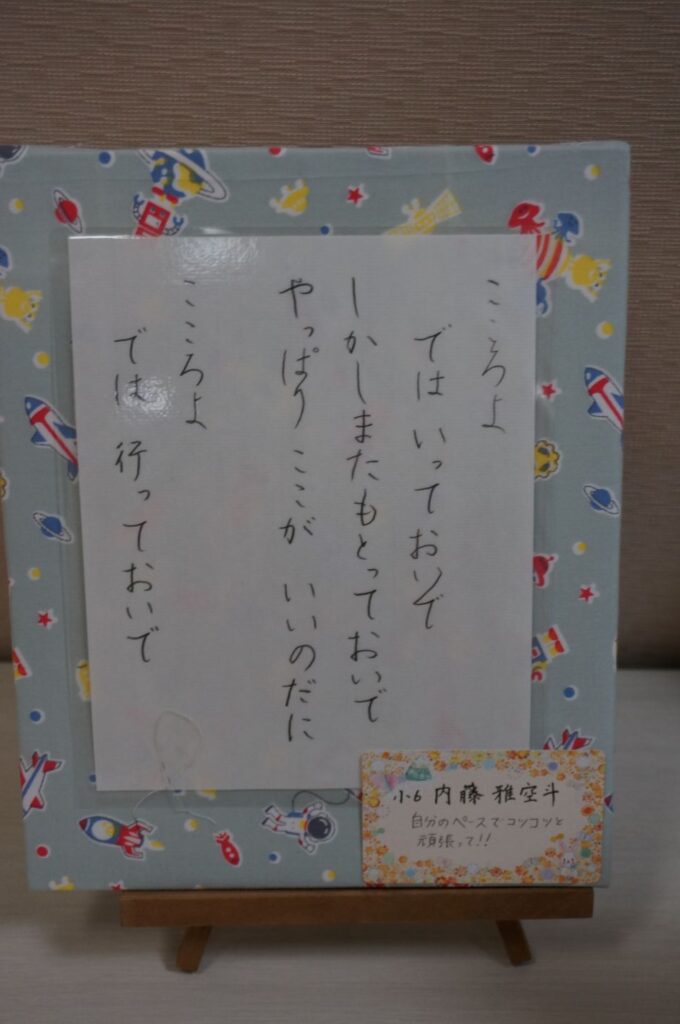 こころよ
では いっておいで
しかしまたもどっておいで
やっぱり ここが いいのだに
こころよ
では 行っておいで
小6 内藤 雅空斗
自分のペースでコツコツと
頑張って!!